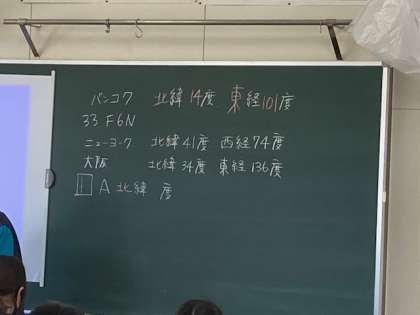 バンコク 北緯14度 東経101度
33 F6N
ニューヨーク 北緯41度 西経74度
大阪 北緯34度 東経136度
A 北緯 度